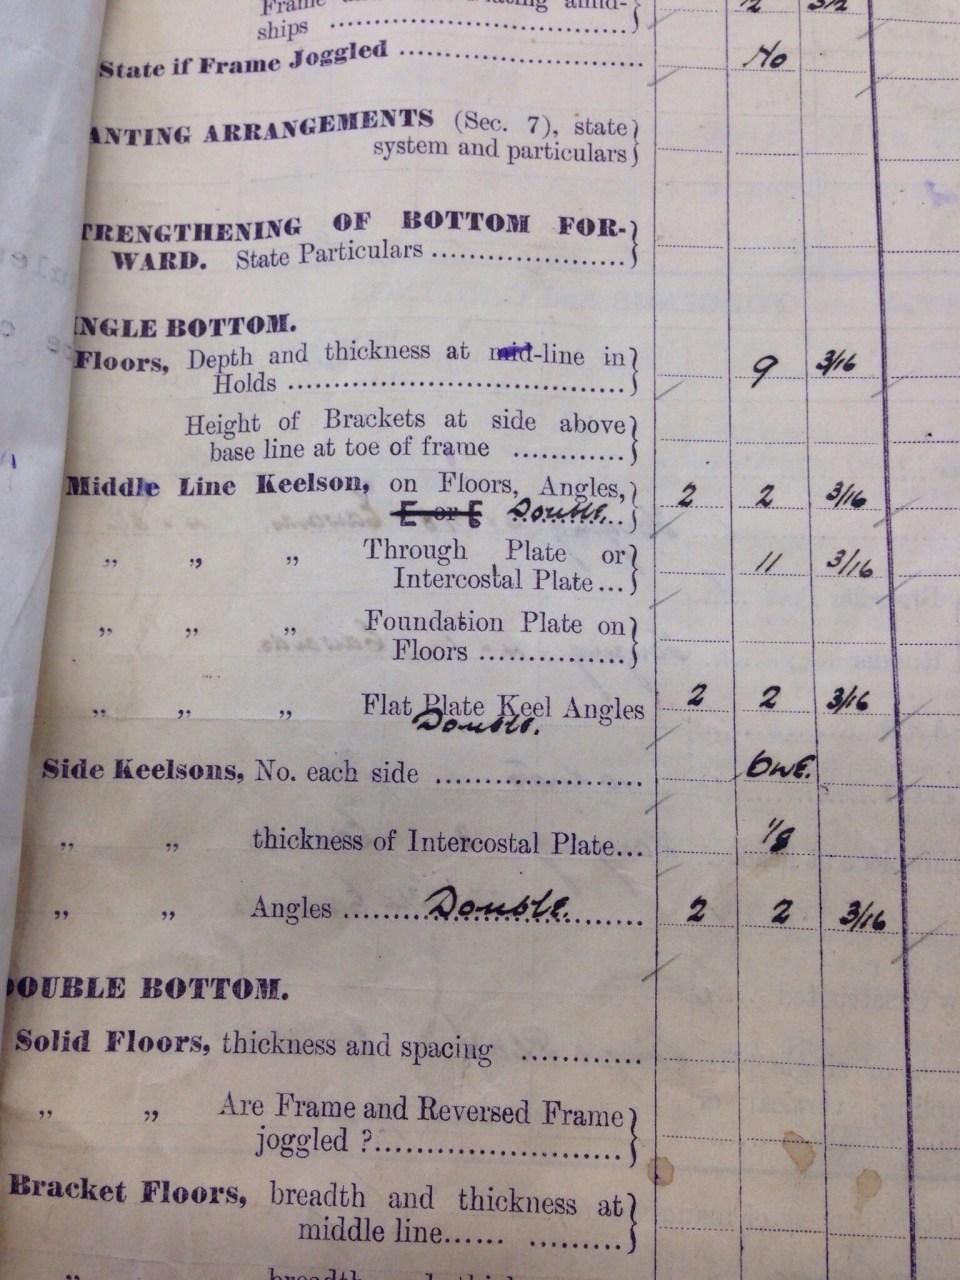 Frame amid-} 2 3/12
ships
State if Frame Joggled No
ANTING ARRANGEMENTS (Sec. 7), state
system and particulars
TRENGTHENING OF BOTTOM FOR-
WARD. State Particulars
INGLE BOTTOM.
Floors, Depth and thickness at mid-line in
Holds 9 3/16
Height of Brackets at side above
base line at toe of frame
Middle Line Keelson, on Floors, Angles, 2 2 3/16
E or E Double
„ „ „ Through Plate or 11 3/16
Intercostal Plate...
„ „ „ Foundation Plate on
Floors
„ „ „ Flat Plate Keel Angles 2 2 3/16
Double.
Side Keelsons, No. each side One.
„ „ thickness of Intercostal Plate... 1/8
„ „ Angles Double. 2 2 3/16
OUBLE BOTTOM.
Solid Floors, thickness and spacing
„ „ Are Frame and Reversed Frame
joggled ?
Bracket Floors, breadth and thickness at
middle line
„ breadth